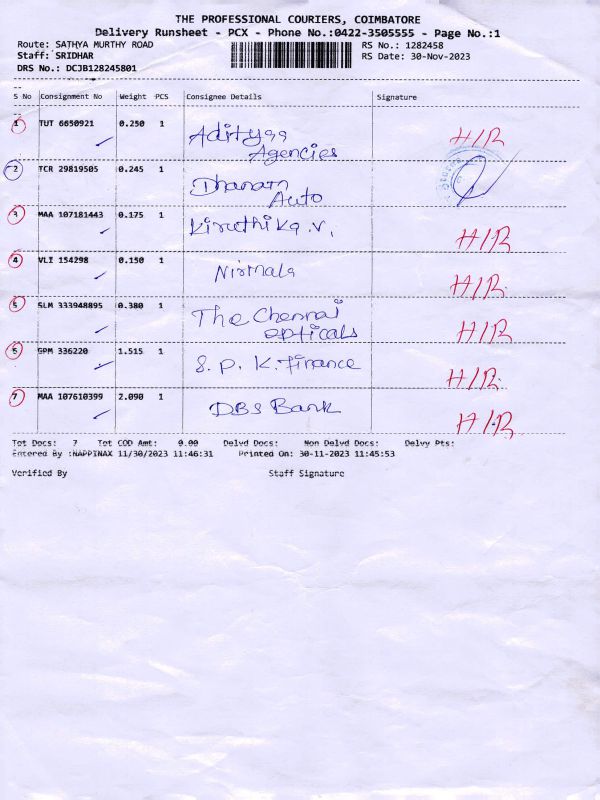 THE PROFESSIONAL COURIERS, COIMBATORE
Delivery Runsheet - PCX - Phone No.:0422-3505555 - Page No.:1
Route: SATHYA MURTHY ROAD RS No.: 1282458
Staff: SRIDHAR RS Date: 30-Nov-2023
DRS No.: DCJB128245801
S No Consignment No Weight PCS Consignee Details Signature
1 TUT 6650921 0.250 1 Adityaa H/R
Agencies
2 TCR 29819505 0.245 1 Dhanam
Auto
3 MAA 107181443 0.175 1 Kiruthika.V. H/R
4 VLI 154298 0.150 1 Nirmala H/R.
5 SLM 333948895 0.380 1 The Chennai H/R
opticals
6 GPM 336220 1.515 1 S. P. K. Finance H/R.
7 MAA 107610399 2.090 1 DBS Bank H/R
Tot Docs: 7 Tot COD Amt: 0.00 Delvd Docs: Non Delvd Docs: Delvy Pts:
Entered By :NAPPINAX 11/30/2023 11:46:31 Printed On: 30-11-2023 11:45:53
Verified By Staff Signature